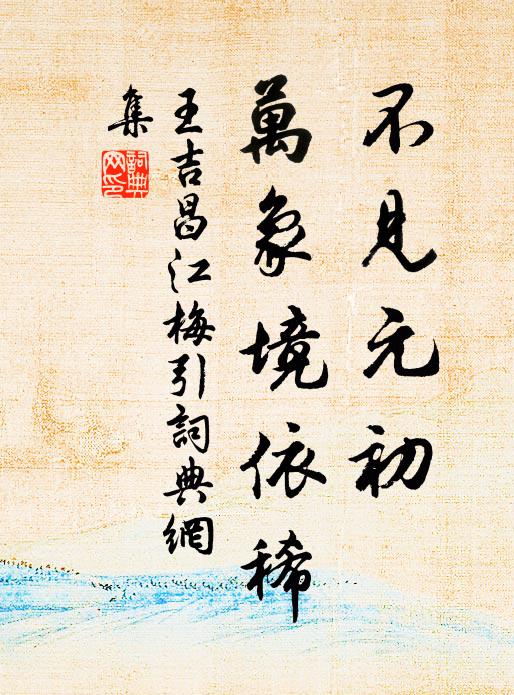 不見元初
萬象境依稀
王吉昌江梅引詞典網
集
詞典
网印